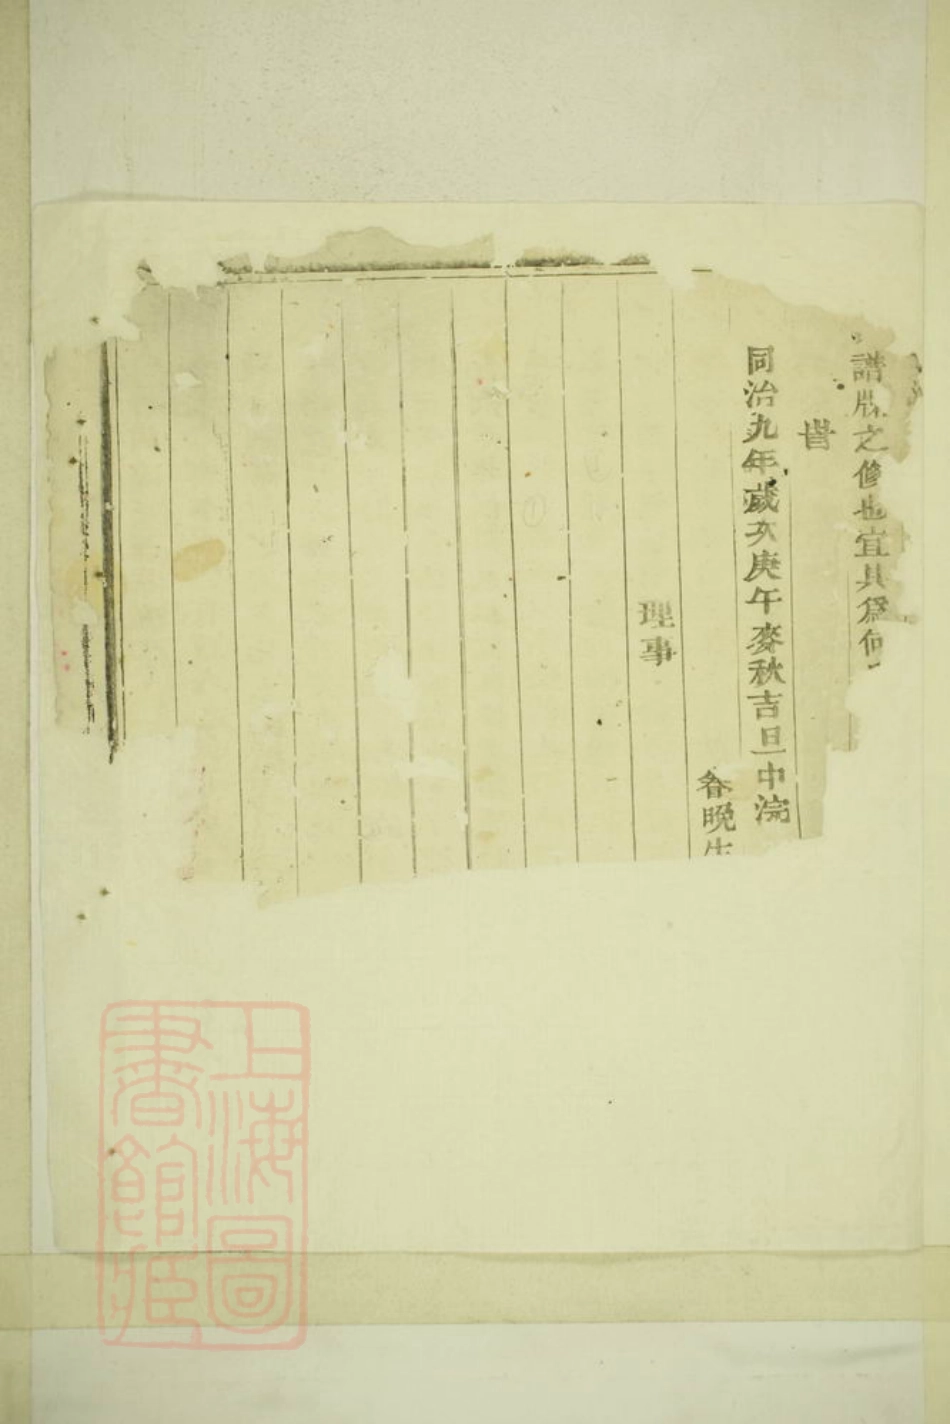 譜牒之修也宜具爲何
時
同治九年歲次庚午麥秋吉旦中浣
眷晚生
理事
上海圖書館藏